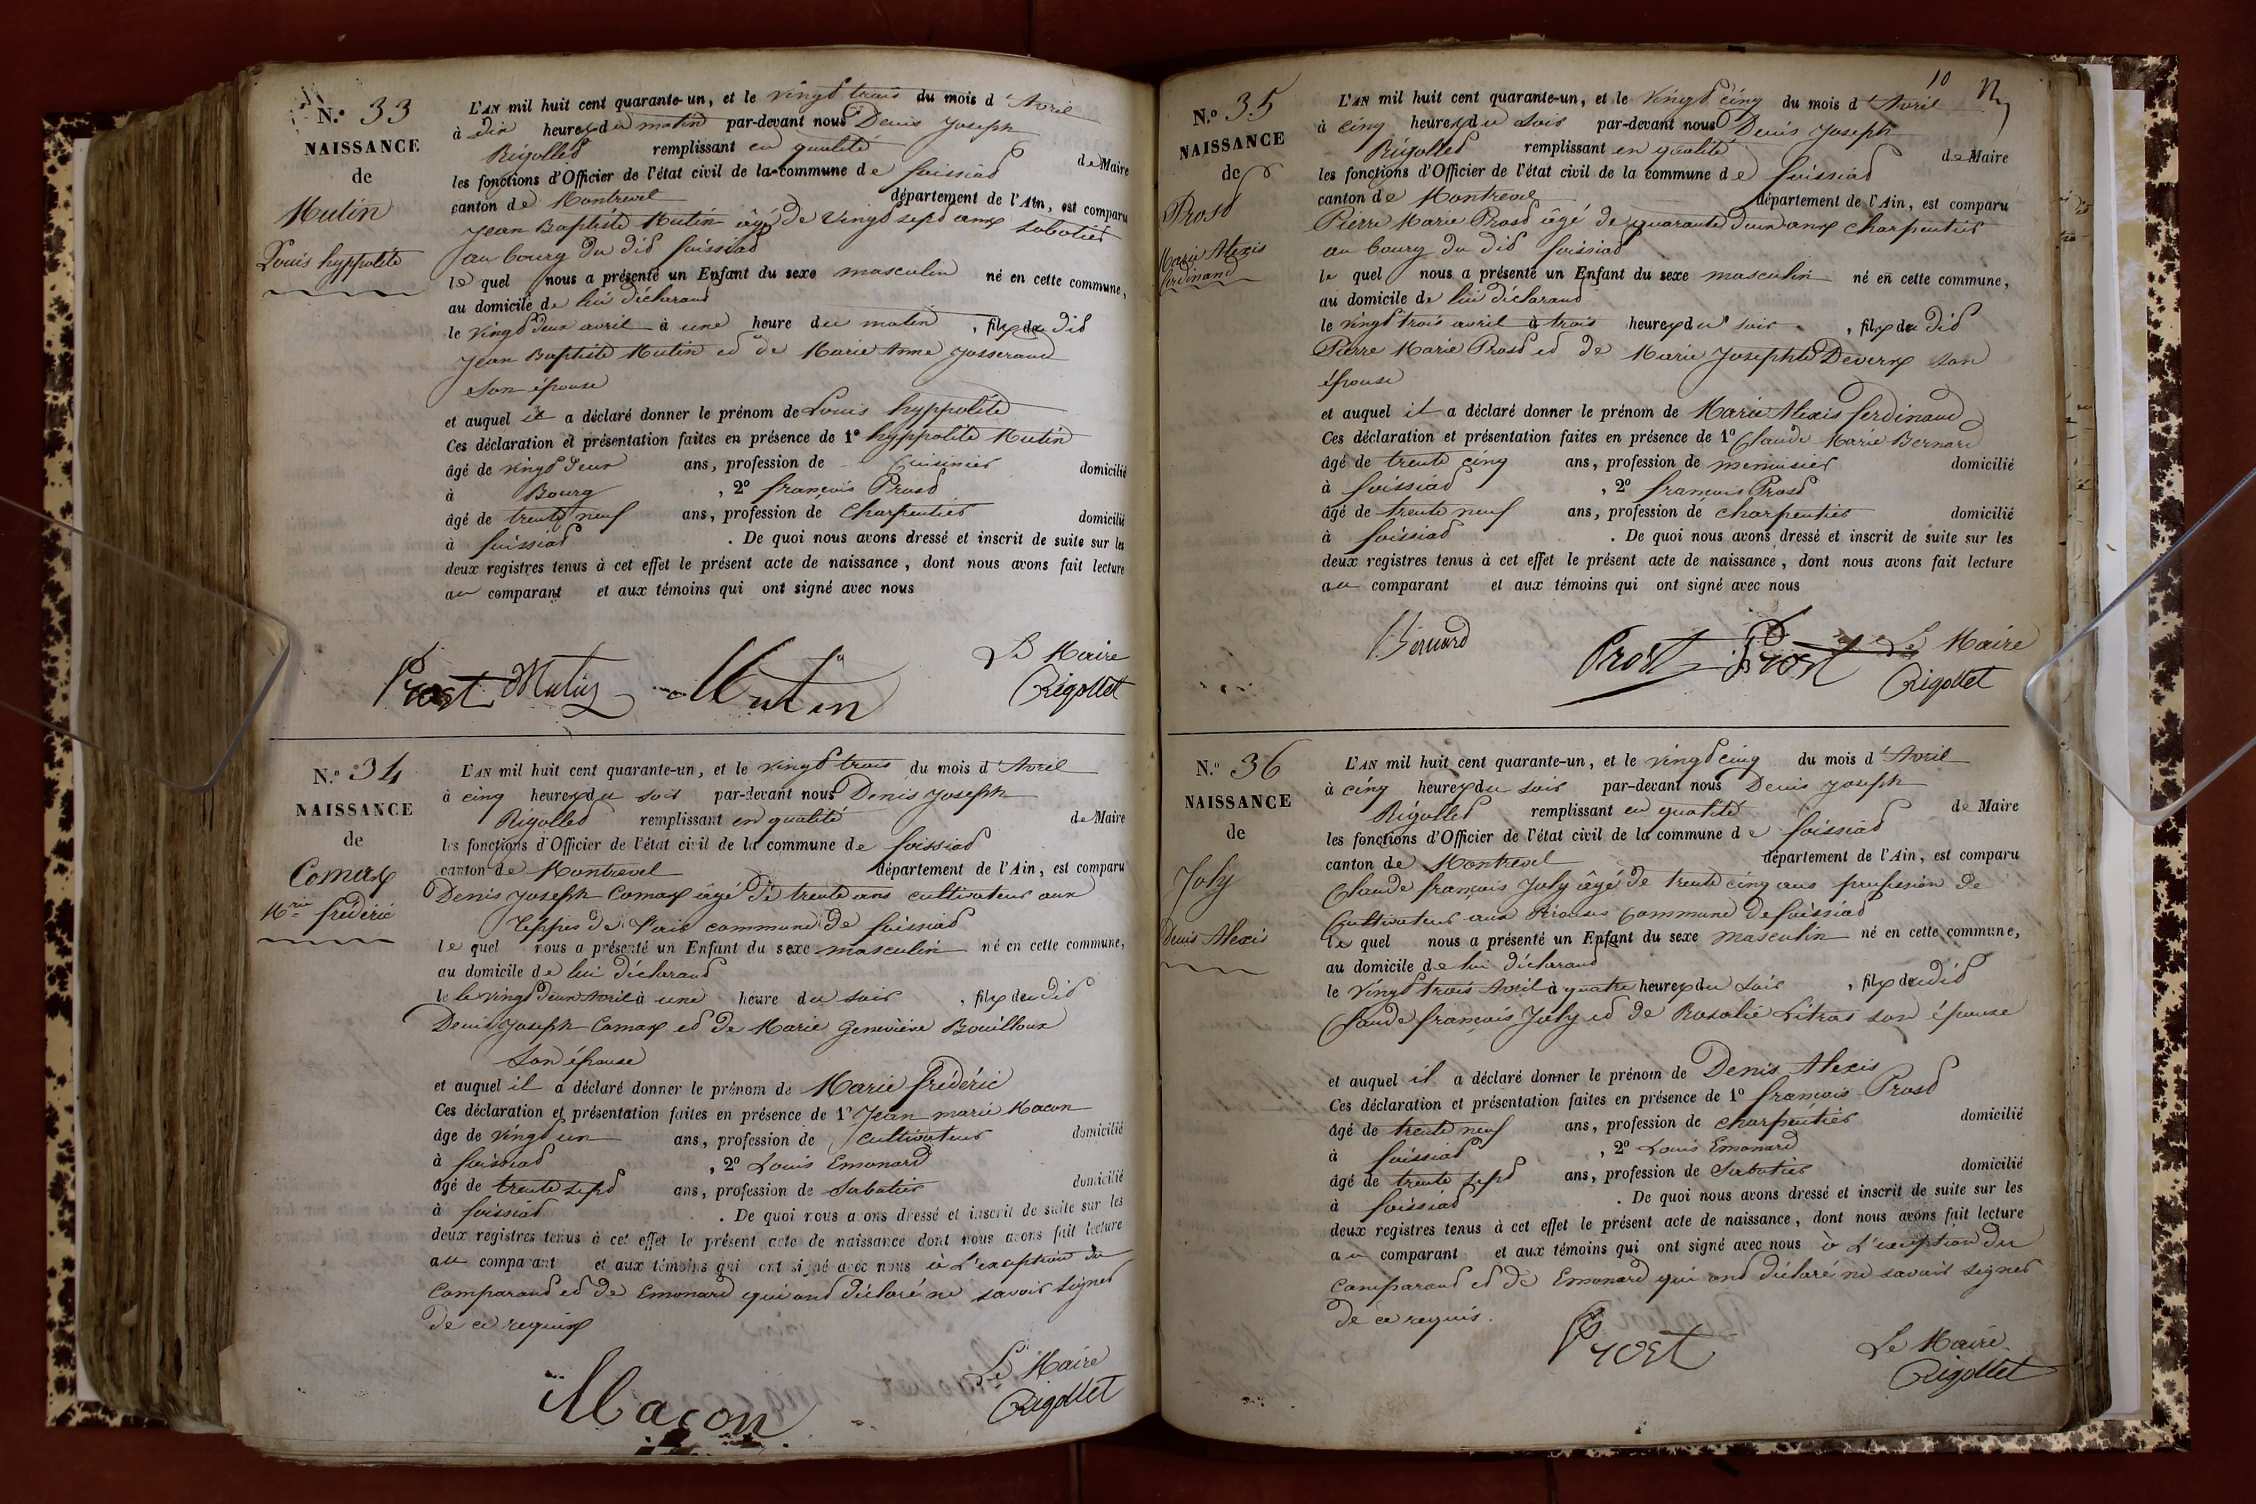 N.º 33
NAISSANCE
de
Mutin
Louis hyppolite
L'AN mil huit cent quarante-un, et le vingt trois du mois d'Avril
à dix heures du matin par-devant nous Denis Joseph
Rigollet remplissant en qualité de Maire
les fonctions d'Officier de l'état civil de la commune de foissiat
canton de Montrevel département de l'Ain, est comparu
Jean Baptiste Mutin âgé de vingt sept ans sabotier
au bourg du dit foissiat
le quel nous a présenté un Enfant du sexe masculin né en cette commune,
au domicile de lui déclarant
le vingt deux avril à une heure du matin, fils du dit
Jean Baptiste Mutin et de Marie Anne Josserand
son épouse
et auquel il a déclaré donner le prénom de Louis hyppolite
Ces déclaration et présentation faites en présence de 1º hyppolite Mutin
âgé de vingt deux ans, profession de Cuisinier domicilié
à Bourg, 2º françois Prost
âgé de trente neuf ans, profession de charpentier domicilié
à foissiat. De quoi nous avons dressé et inscrit de suite sur les
deux registres tenus à cet effet le présent acte de naissance, dont nous avons fait lecture
au comparant et aux témoins qui ont signé avec nous
Prost Mutin Mutin Le Maire
Rigollet
N.º 34
NAISSANCE
de
Comax
Mie frédéric
L'AN mil huit cent quarante-un, et le vingt trois du mois d'Avril
à cinq heures du soir par-devant nous Denis Joseph
Rigollet remplissant en qualité de Maire
les fonctions d'Officier de l'état civil de la commune de foissiat
canton de Montrevel département de l'Ain, est comparu
Denis Joseph Comax âgé de trente ans cultivateur aux
Teppes de commune de foissiat
le quel nous a présenté un Enfant du sexe masculin né en cette commune,
au domicile de lui déclarant
le le vingt deux Avril à une heure du soir, fils du dit
Denis Joseph Comax et de Marie Geneviève Bouilloux
son épouse
et auquel il a déclaré donner le prénom de Marie frédéric
Ces déclaration et présentation faites en présence de 1º Jean marie Macon
âgé de vingt un ans, profession de cultivateur domicilié
à foissiat, 2º Louis Emonard
âgé de trente sept ans, profession de Sabotier domicilié
à foissiat. De quoi nous avons dressé et inscrit de suite sur les
deux registres tenus à cet effet le présent acte de naissance dont nous avons fait lecture
au comparant et aux témoins qui ont signé avec nous à l'exception du
comparant et de Emonard qui ont déclaré ne savoir signer
de ce requis
Macon Le Maire
Rigollet
10
N.º 35
NAISSANCE
de
Prost
Marie Alexis
ferdinand
L'AN mil huit cent quarante-un, et le vingt cinq du mois d'Avril
à cinq heures du soir par-devant nous Denis Joseph
Rigollet remplissant en qualité de Maire
les fonctions d'Officier de l'état civil de la commune de foissiat
canton de Montrevel département de l'Ain, est comparu
Pierre Marie Prost âgé de quarante deux ans charpentier
au bourg du dit foissiat
le quel nous a présenté un Enfant du sexe masculin né en cette commune,
au domicile de lui déclarant
le vingt trois avril à trois heures du soir, fils du dit
Pierre Marie Prost et de Marie Josephte Deverx son
épouse
et auquel il a déclaré donner le prénom de Marie Alexis ferdinand
Ces déclaration et présentation faites en présence de 1º Claude Marie Bernard
âgé de trente cinq ans, profession de menuisier domicilié
à foissiat, 2º françois Prost
âgé de trente neuf ans, profession de charpentier domicilié
à foissiat. De quoi nous avons dressé et inscrit de suite sur les
deux registres tenus à cet effet le présent acte de naissance, dont nous avons fait lecture
au comparant et aux témoins qui ont signé avec nous
Bernard Prost Prost Le Maire
Rigollet
N.º 36
NAISSANCE
de
Joly
Denis Alexis
L'AN mil huit cent quarante-un, et le vingt cinq du mois d'Avril
à cinq heures du soir par-devant nous Denis Joseph
Rigollet remplissant en qualité de Maire
les fonctions d'Officier de l'état civil de la commune de foissiat
canton de Montrevel département de l'Ain, est comparu
Claude françois Joly âgé de trente cinq ans profession de
Cultivateur aux commune de foissiat
le quel nous a présenté un Enfant du sexe masculin né en cette commune,
au domicile de lui déclarant
le vingt trois Avril à quatre heures du soir, fils du dit
Claude françois Joly et de Rosalie Litras son épouse
et auquel il a déclaré donner le prénom de Denis Alexis
Ces déclaration et présentation faites en présence de 1º françois Prost
âgé de trente neuf ans, profession de charpentier domicilié
à foissiat, 2º Louis Emonard
âgé de trente sept ans, profession de Sabotier domicilié
à foissiat. De quoi nous avons dressé et inscrit de suite sur les
deux registres tenus à cet effet le présent acte de naissance, dont nous avons fait lecture
au comparant et aux témoins qui ont signé avec nous à l'exception du
comparant et de Emonard qui ont déclaré ne savoir signer
de ce requis.
Prost Le Maire
Rigollet